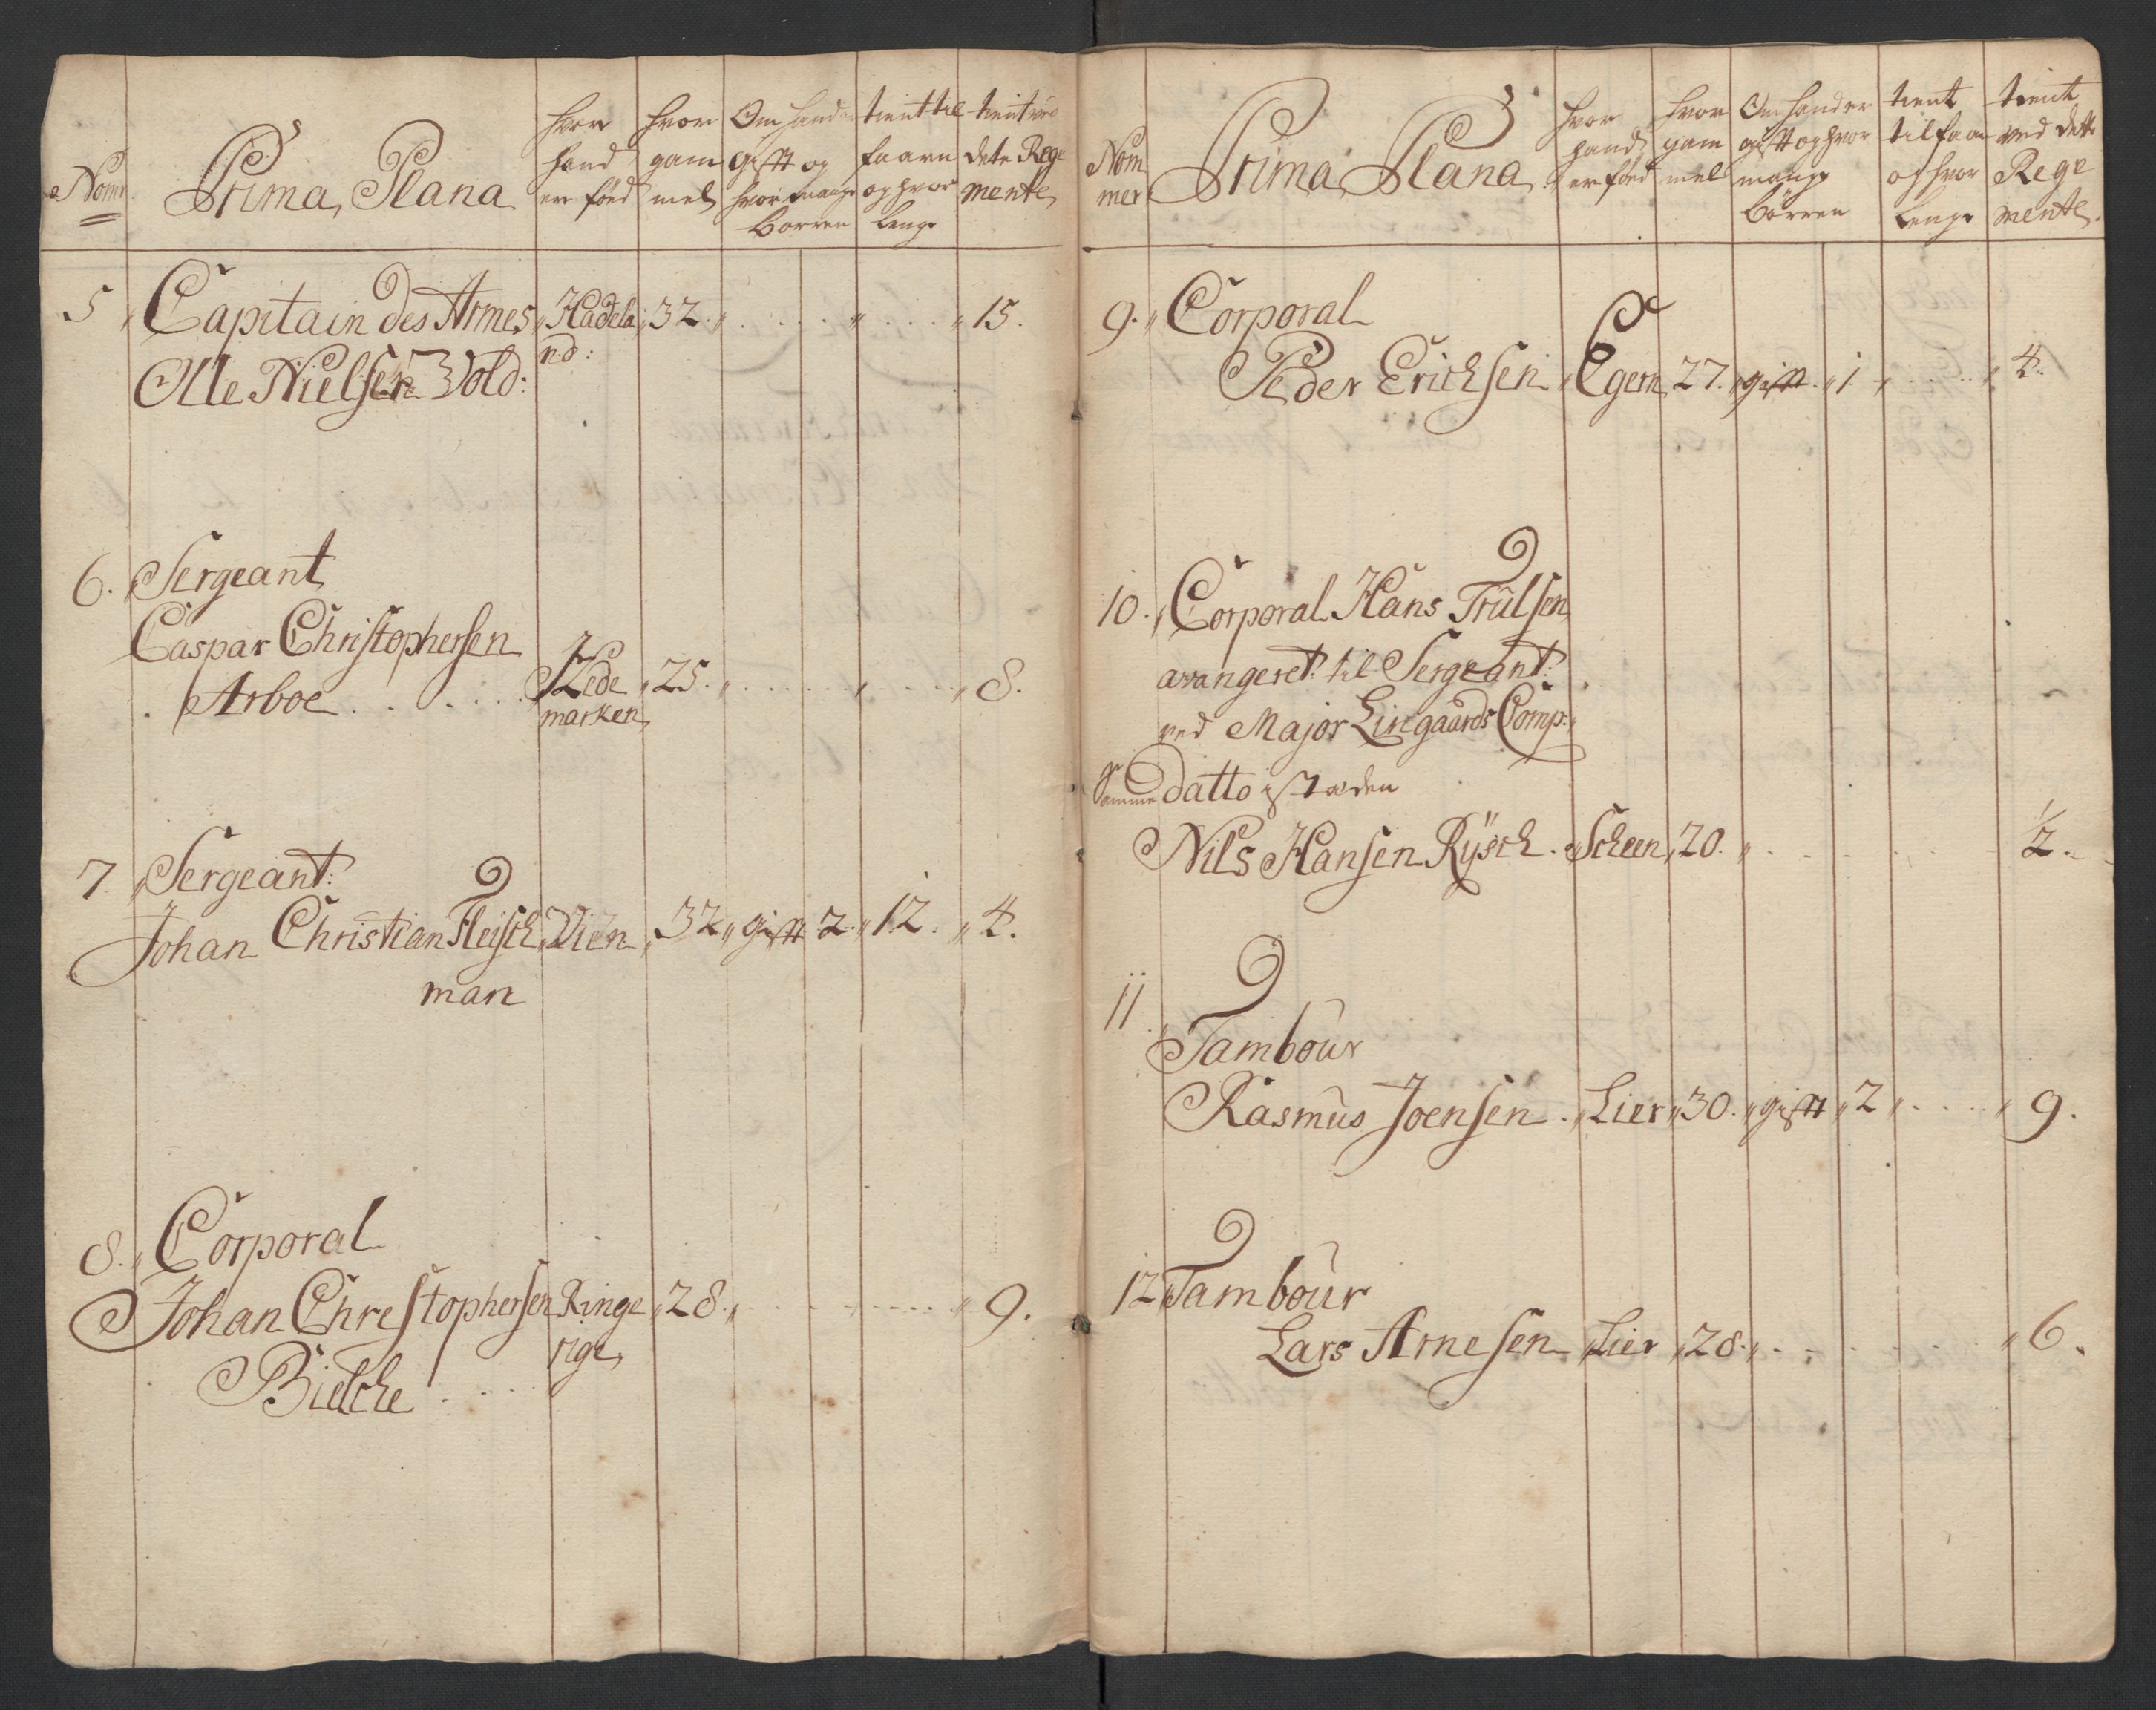 Nomr
Prima Plana
hvor hand er föed
hvor gam mel
Om hand er gifft og hvor mange borren
tient til faarn og hvor lenge
tient ved dete Rege mente
5 Capitain des Armes Hadela 32. 15.
Olle Nielsen Vold: nd:
6. Sergeant
Caspar Christophersen
Arboe Hede 25. 8.
marken
7. Sergeant:
Johan Christian Fleisch Vien 32 gifft 2 12. 4.
man
8. Corporal
Johan Christophersen Ringe 28. 9.
Bielche rige
Nom mer
Prima Plana
hvor hand er föed
hvor gam mel
Om hand er gifft og hvor mange börren
tient til faarn og hvor lenge
tient ved dette Rege mente.
9. Corporal
Peder Erichsen Egern 27. gifft 1 4.
10. Corporal Hans Trülsen
avangeret til Sergeant:
ved Major Lingaards Comp:
datto i stæden
Nils Hansen Rÿsch Scheen 20. ½
11 Tamboŭr
Rasmŭs Joensen Lier 30. gifft 2 9.
12 Tamboŭr
Lars Arnesen Lier 28. 6.